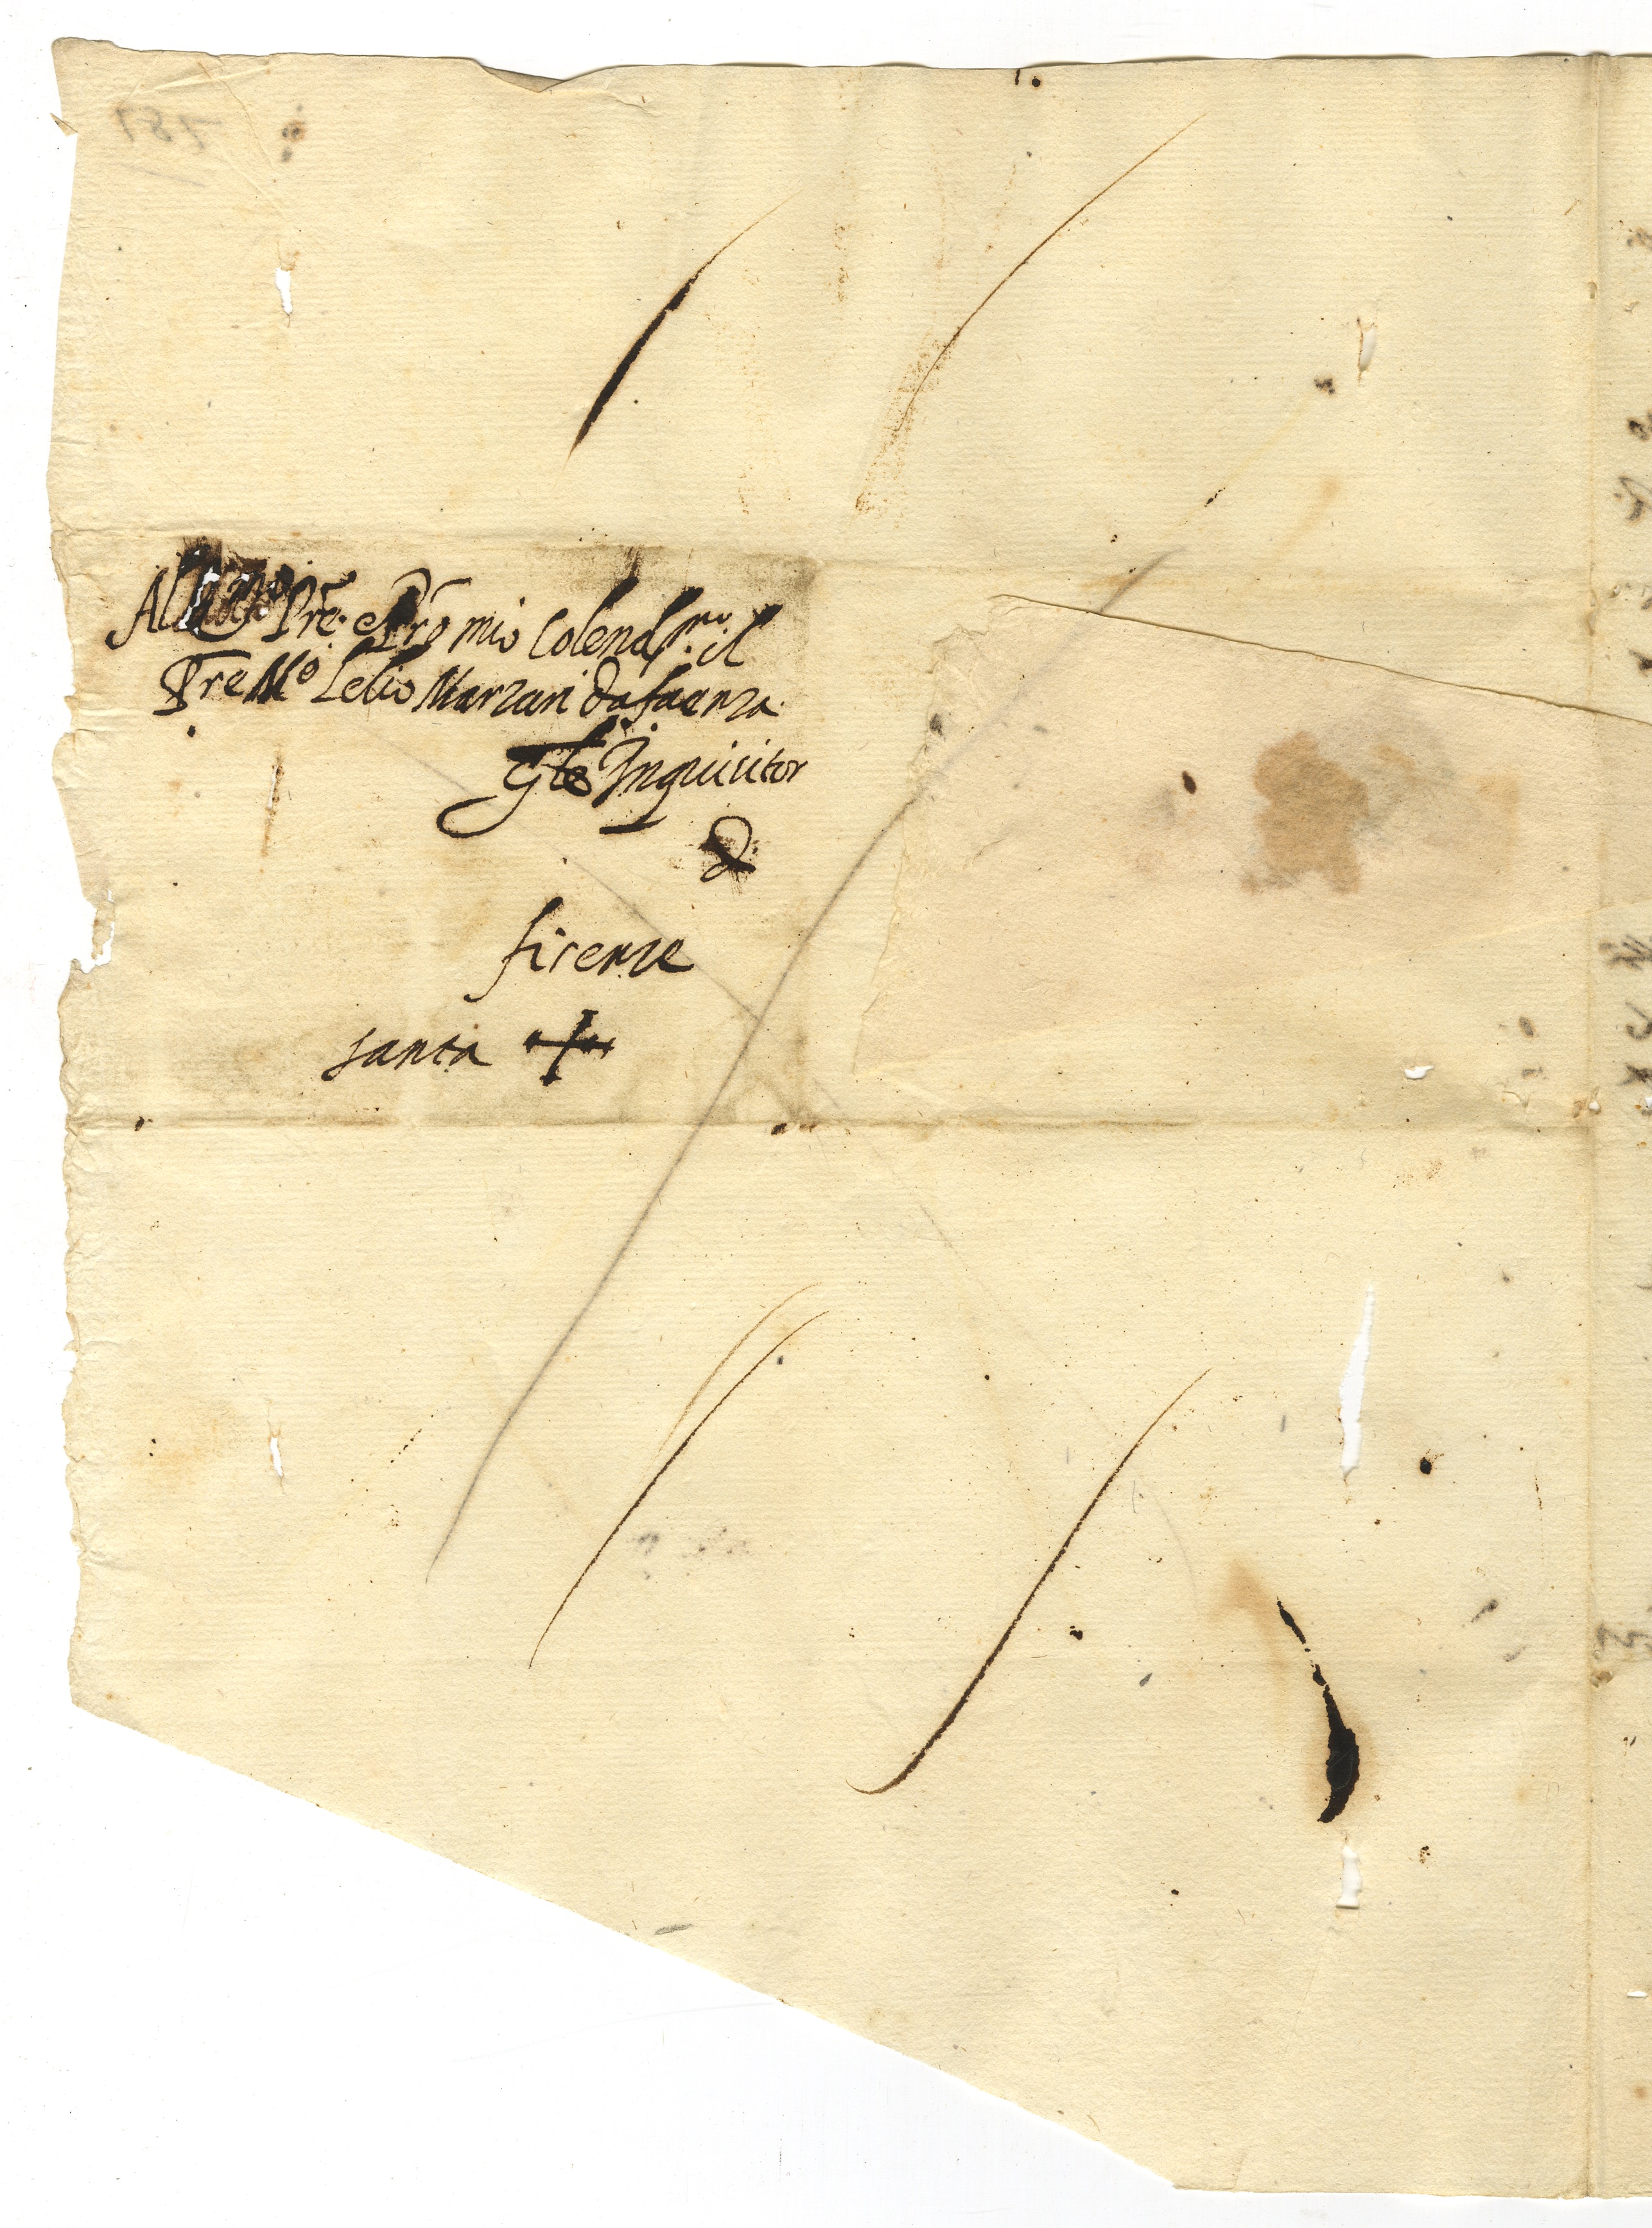 Al Pre. e Pro mio Colend.mo il
Pre Mo Lelio Marzari da faenza
Gle Inquisitor
d
firenze
santa +